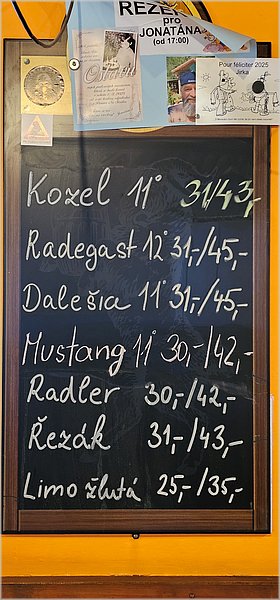 REZER
pro
JONATÁNA
(od 17:00)
Pour féliciter 2025
Jirka
Kozel 11° 31/43,-
Radegast 12° 31,-/45,-
Dalešia 11° 31,-/45,-
Mustang 11° 30,-/42,-
Radler 30,-/42,-
Řezák 31,-/43,-
Limo žlutá 25,-/35,-